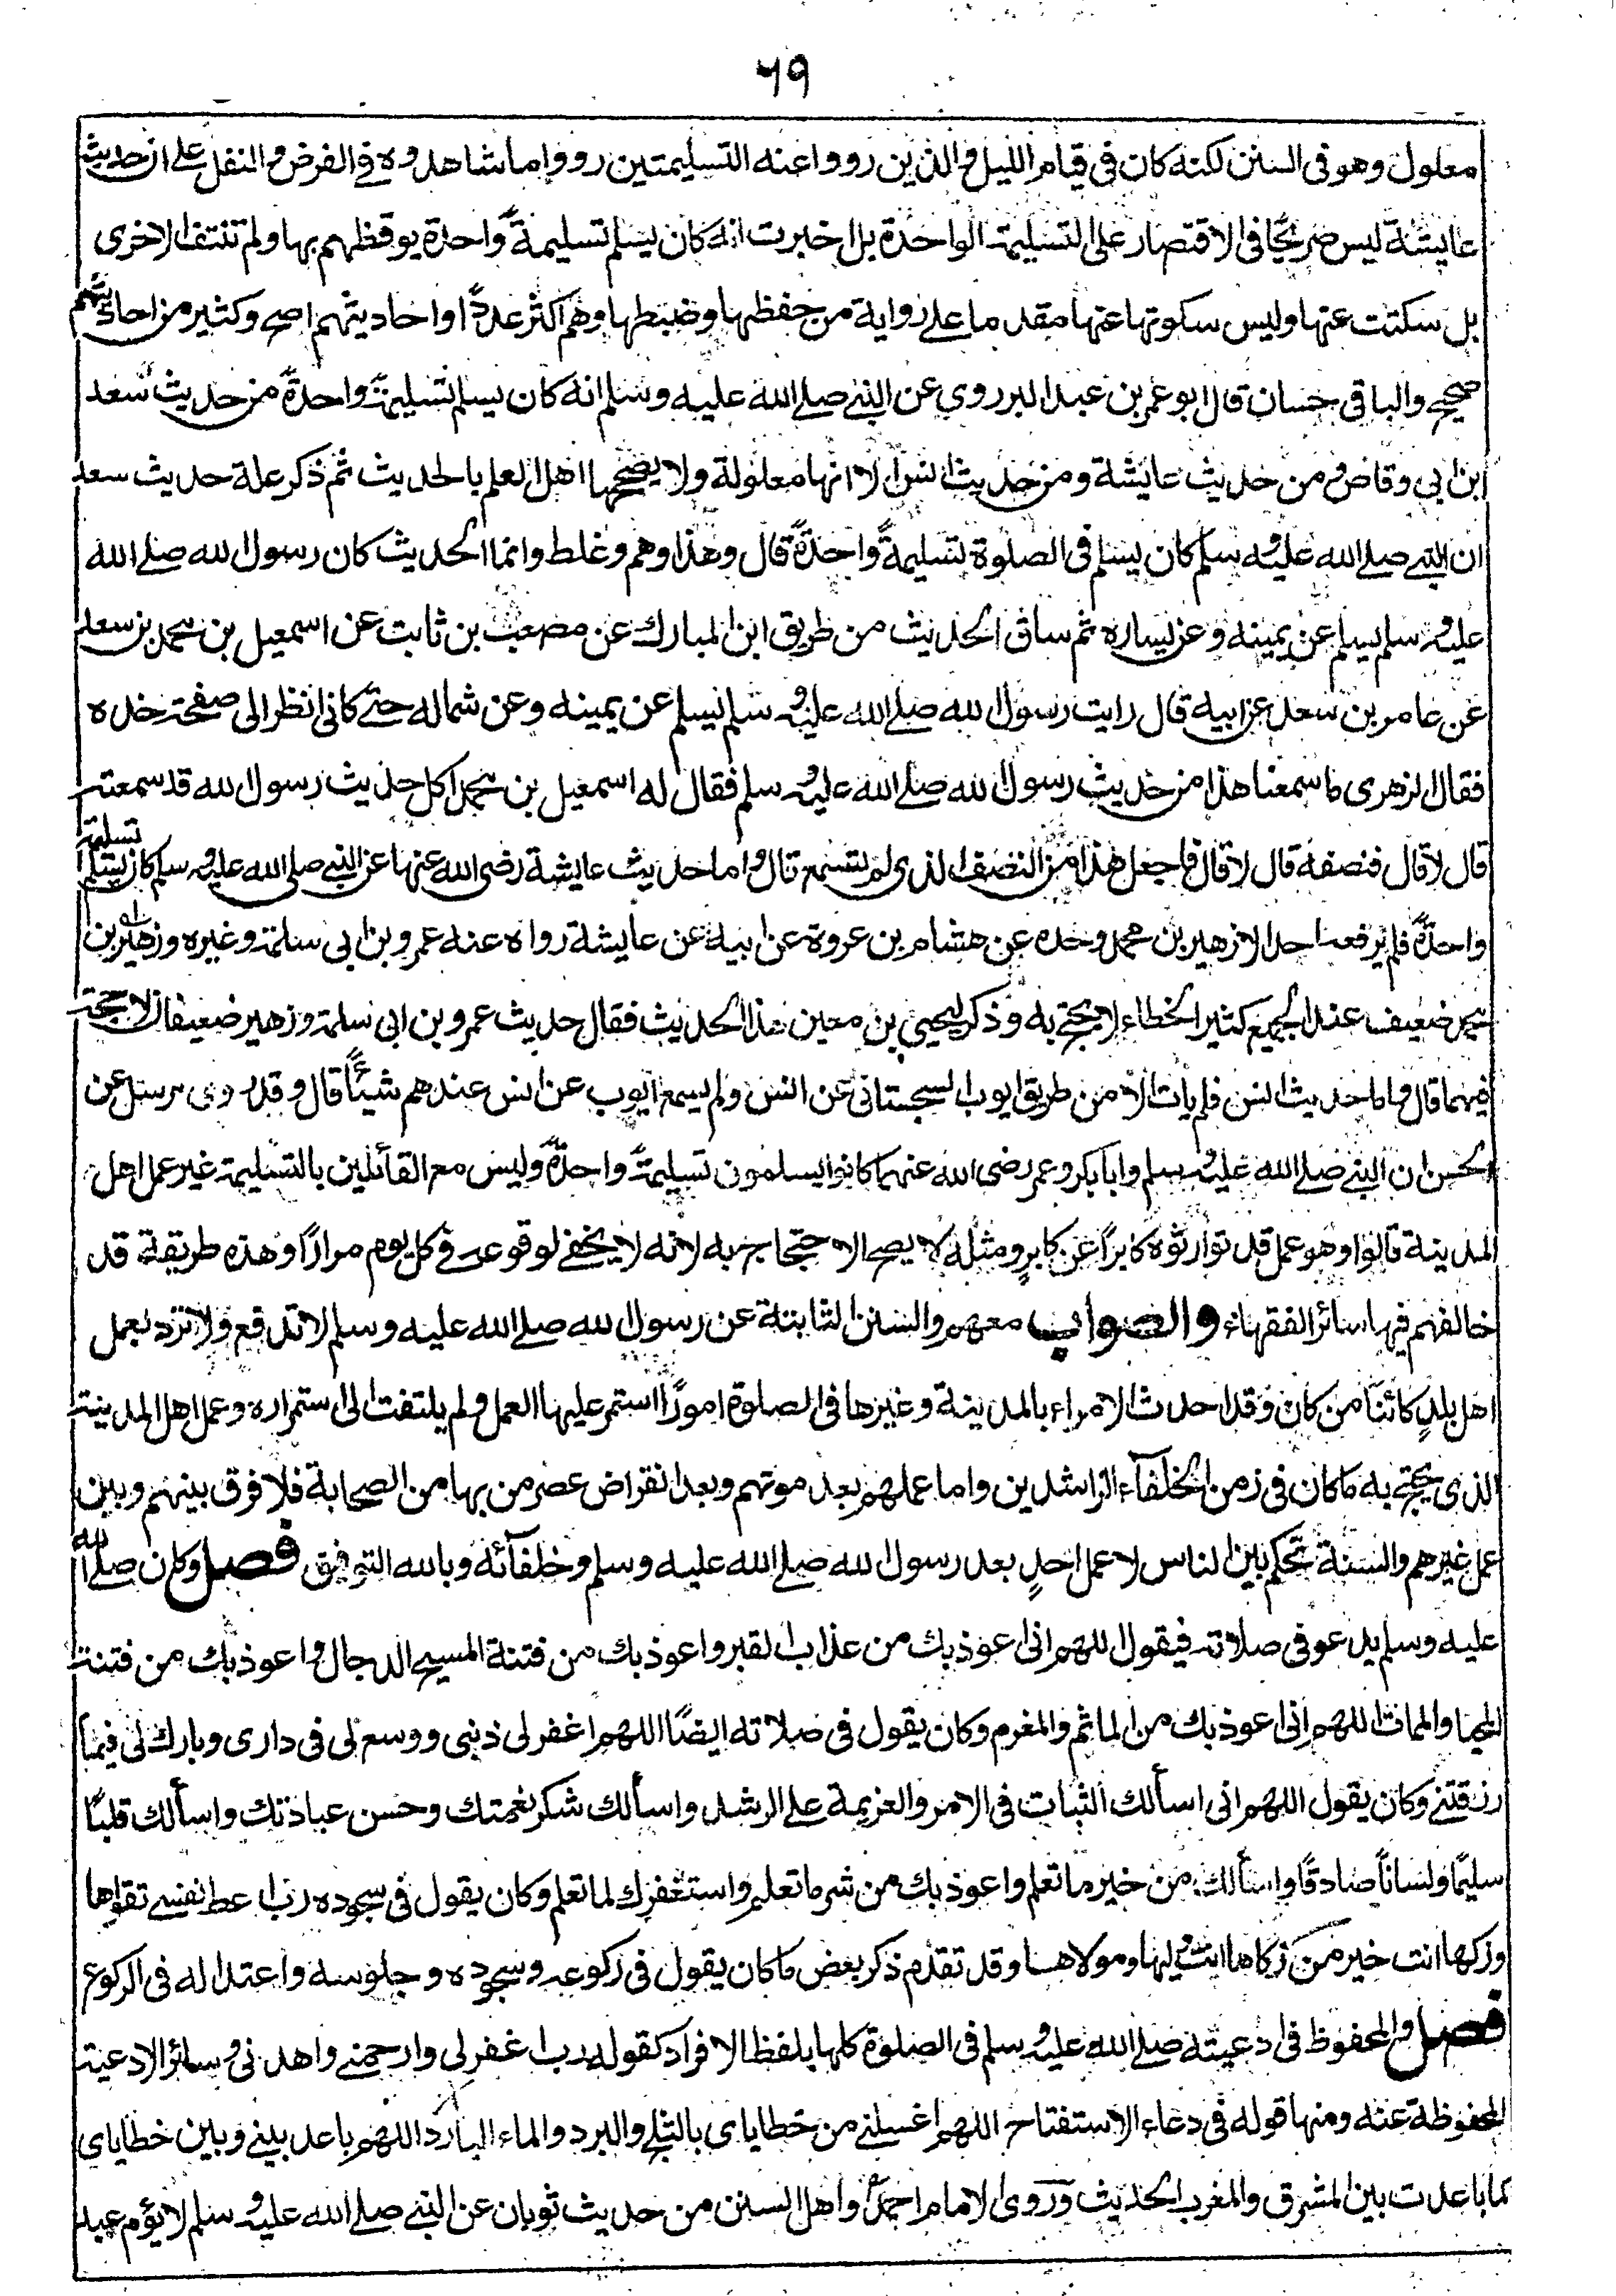 ٦٩
معلول وهو فى السنن لكنه كان فى قيام الليل والذين رووا عنه التسليمتين رووا ما شاهدوه فى الفرض والنفل على ان حديث
عايشة ليس صريحًا فى الاقتصار على التسليمة الواحدة بل اخبرت انه كان يسلم تسليمةً واحدة يوقظهم بها ولم تنتف الاخرى
بل سكتت عنها وليس سكوتها عنها مقدما على رواية من حفظها وضبطها وهم اكثر عددًا واحاديثهم اصح وكثير من احاديثهم
صحيح والباقى حسان قال ابو عمر بن عبد البر روي عن النبى صلى الله عليه وسلم انه كان يسلم تسليمةً واحدةً من حديث سعد
ابن ابى وقاص ومن حديث عايشة ومن حديث انس الا انها معلولة ولا يصححها اهل العلم بالحديث ثم ذكر علة حديث سعد
ان النبى صلى الله عليه وسلم كان يسلم فى الصلوة تسليمةً واحدةً قال وهذا وهم وغلط وانما الحديث كان رسول الله صلى الله
عليه وسلم يسلم عن يمينه وعن يساره ثم ساق الحديث من طريق ابن المبارك عن مصعب بن ثابت عن اسمعيل بن محمد بن سعد
عن عامر بن سعد عن ابيه قال رايت رسول الله صلى الله عليه وسلم يسلم عن يمينه وعن شماله حتى كانى انظر الى صفحة خده
فقال الزهرى ما سمعنا هذا من حديث رسول الله صلى الله عليه وسلم فقال له اسمعيل بن محمد اكل حديث رسول الله قد سمعته
قال لا قال فنصفه قال لا قال فاجعل هذا من النصف الذى لم تسمع قال واما حديث عايشة رضى الله عنها عن النبى صلى الله عليه وسلم كان يسلم تسليمة
واحدةً فلم يرفعه احد الا زهير بن محمد وحده عن هشام بن عروة عن ابيه عن عايشة رواه عنه عمرو بن ابى سلمة وغيره وزهير بن
محمد ضعيف عند الجميع كثير الخطاء لا يحتج به وذكر ليحيي بن معين هذا الحديث فقال حديث عمرو بن ابى سلمة وزهير ضعيفان لا حجة
فيهما قال واما حديث انس فلم يات الا من طريق ايوب السجستانى عن انس ولم يسمع ايوب عن انس عندهم شيئًا قال وقد روى مرسل عن
الحسن ان النبى صلى الله عليه وسلم وابا بكر وعمر رضى الله عنهما كانوا يسلمون تسليمةً واحدةً وليس مع القائلين بالتسليمة غير عمل اهل
المدينة قالوا وهو عمل قد توارثوه كابرًا عن كابرٍ ومثله لا يصح الاحتجاج به لانه لا يخفى لوقوعه فى كل يوم مرارًا وهذه طريقة قد
خالفهم فيها سائر الفقهاء والصواب معهم والسنن الثابتة عن رسول الله صلى الله عليه وسلم لا تدفع ولا ترد بعمل
اهل بلدٍ كائنًا من كان وقد احدث الامراء بالمدينة وغيرها فى الصلوة امورًا استمر عليها العمل ولم يلتفت الى استمراره وعمل اهل المدينة
الذى يحتج به ما كان فى زمن الخلفآء الراشدين واما عملهم بعد موتهم وبعد انقراض عصر من بها من الصحابة فلا فرق بينهم وبين
عمل غيرهم والسنة تحكم بين الناس لا عمل احدٍ بعد رسول الله صلى الله عليه وسلم وخلفآئه وبالله التوفيق فصل وكان صلى الله
عليه وسلم يدعو فى صلاته فيقول اللهم انى اعوذ بك من عذاب القبر واعوذ بك من فتنة المسيح الدجال واعوذ بك من فتنة
المحيا والممات اللهم انى اعوذ بك من الماثم والمغرم وكان يقول فى صلاته ايضًا اللهم اغفر لى ذنبى ووسع لى فى دارى وبارك لى فيما
رزقتنى وكان يقول اللهم انى اسألك الثبات فى الامر والعزيمة على الرشد واسألك شكر نعمتك وحسن عبادتك واسألك قلبًا
سليمًا ولسانًا صادقًا واسألك من خير ما تعلم واعوذ بك من شر ما تعلم واستغفرك لما تعلم وكان يقول فى سجوده رب اعط نفسى تقواها
وزكها انت خير من زكاها انت وليها ومولاها وقد تقدم ذكر بعض ما كان يقول فى ركوعه وسجوده وجلوسه واعتداله فى الركوع
فصل والمحفوظ فى ادعيته صلى الله عليه وسلم فى الصلوة كلها بلفظ الافراد كقوله رب اغفر لى وارحمنى واهدنى وسائر الادعية
المحفوظة عنه ومنها قوله فى دعاء الاستفتاح اللهم اغسلنى من خطاياى بالثلج والبرد والماء البارد اللهم باعد بينى وبين خطاياى
كما باعدت بين المشرق والمغرب الحديث وروى الامام احمد واهل السنن من حديث ثوبان عن النبى صلى الله عليه وسلم لا يؤم عبد